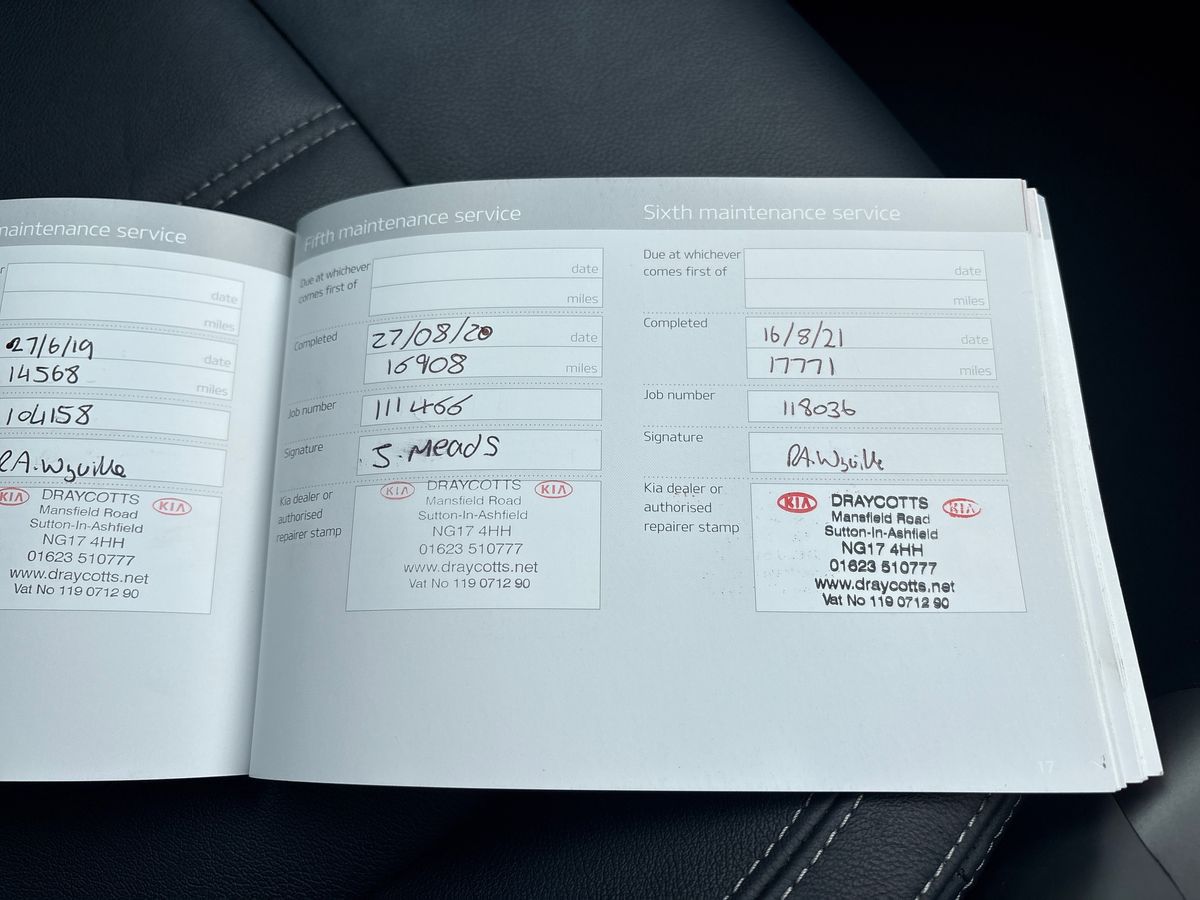 maintenance service
date
miles
27/6/19
date
14568
miles
104158
RA. Wyville
KIA DRAYCOTTS KIA
Mansfield Road
Sutton-In-Ashfield
NG17 4HH
01623 510777
www.draycotts.net
Vat No 119 0712 90
Fifth maintenance service
Due at whichever
comes first of
date
miles
Completed
27/08/20 date
16908 miles
Job number
111466
Signature
S. Meads
Kia dealer or
authorised
repairer stamp
KIA DRAYCOTTS KIA
Mansfield Road
Sutton-In-Ashfield
NG17 4HH
01623 510777
www.draycotts.net
Vat No 119 0712 90
Sixth maintenance service
Due at whichever
comes first of
date
miles
Completed
16/8/21 date
17771 miles
Job number
118036
Signature
RA. Wyville
Kia dealer or
authorised
repairer stamp
KIA DRAYCOTTS KIA
Mansfield Road
Sutton-In-Ashfield
NG17 4HH
01623 510777
www.draycotts.net
Vat No 119 0712 90
17